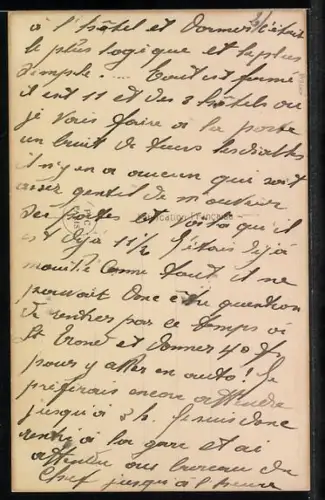 à l'hôtel et dormir c'était
le plus logique et le plus
simple. .... Tout est fermé
il est 11 et des 3 hôtels ou
je vais faire à la porte
un bruit de tous les diables
il n'y en a aucun qui soit
assez gentil de m'ouvrir
ses portes et voilà qu'il
est déjà 11 1/2 J'étais déjà
mouillé comme tout il ne
pouvait donc être question
de rentrer par ce temps à
St Trond et donner 40 Fr
pour y aller en auto! Je
préférais encore attendre
jusqu'à 5 h. Je suis donc
rentré à la gare et ai
attendu au bureau du
Chef jusqu'à l'heure